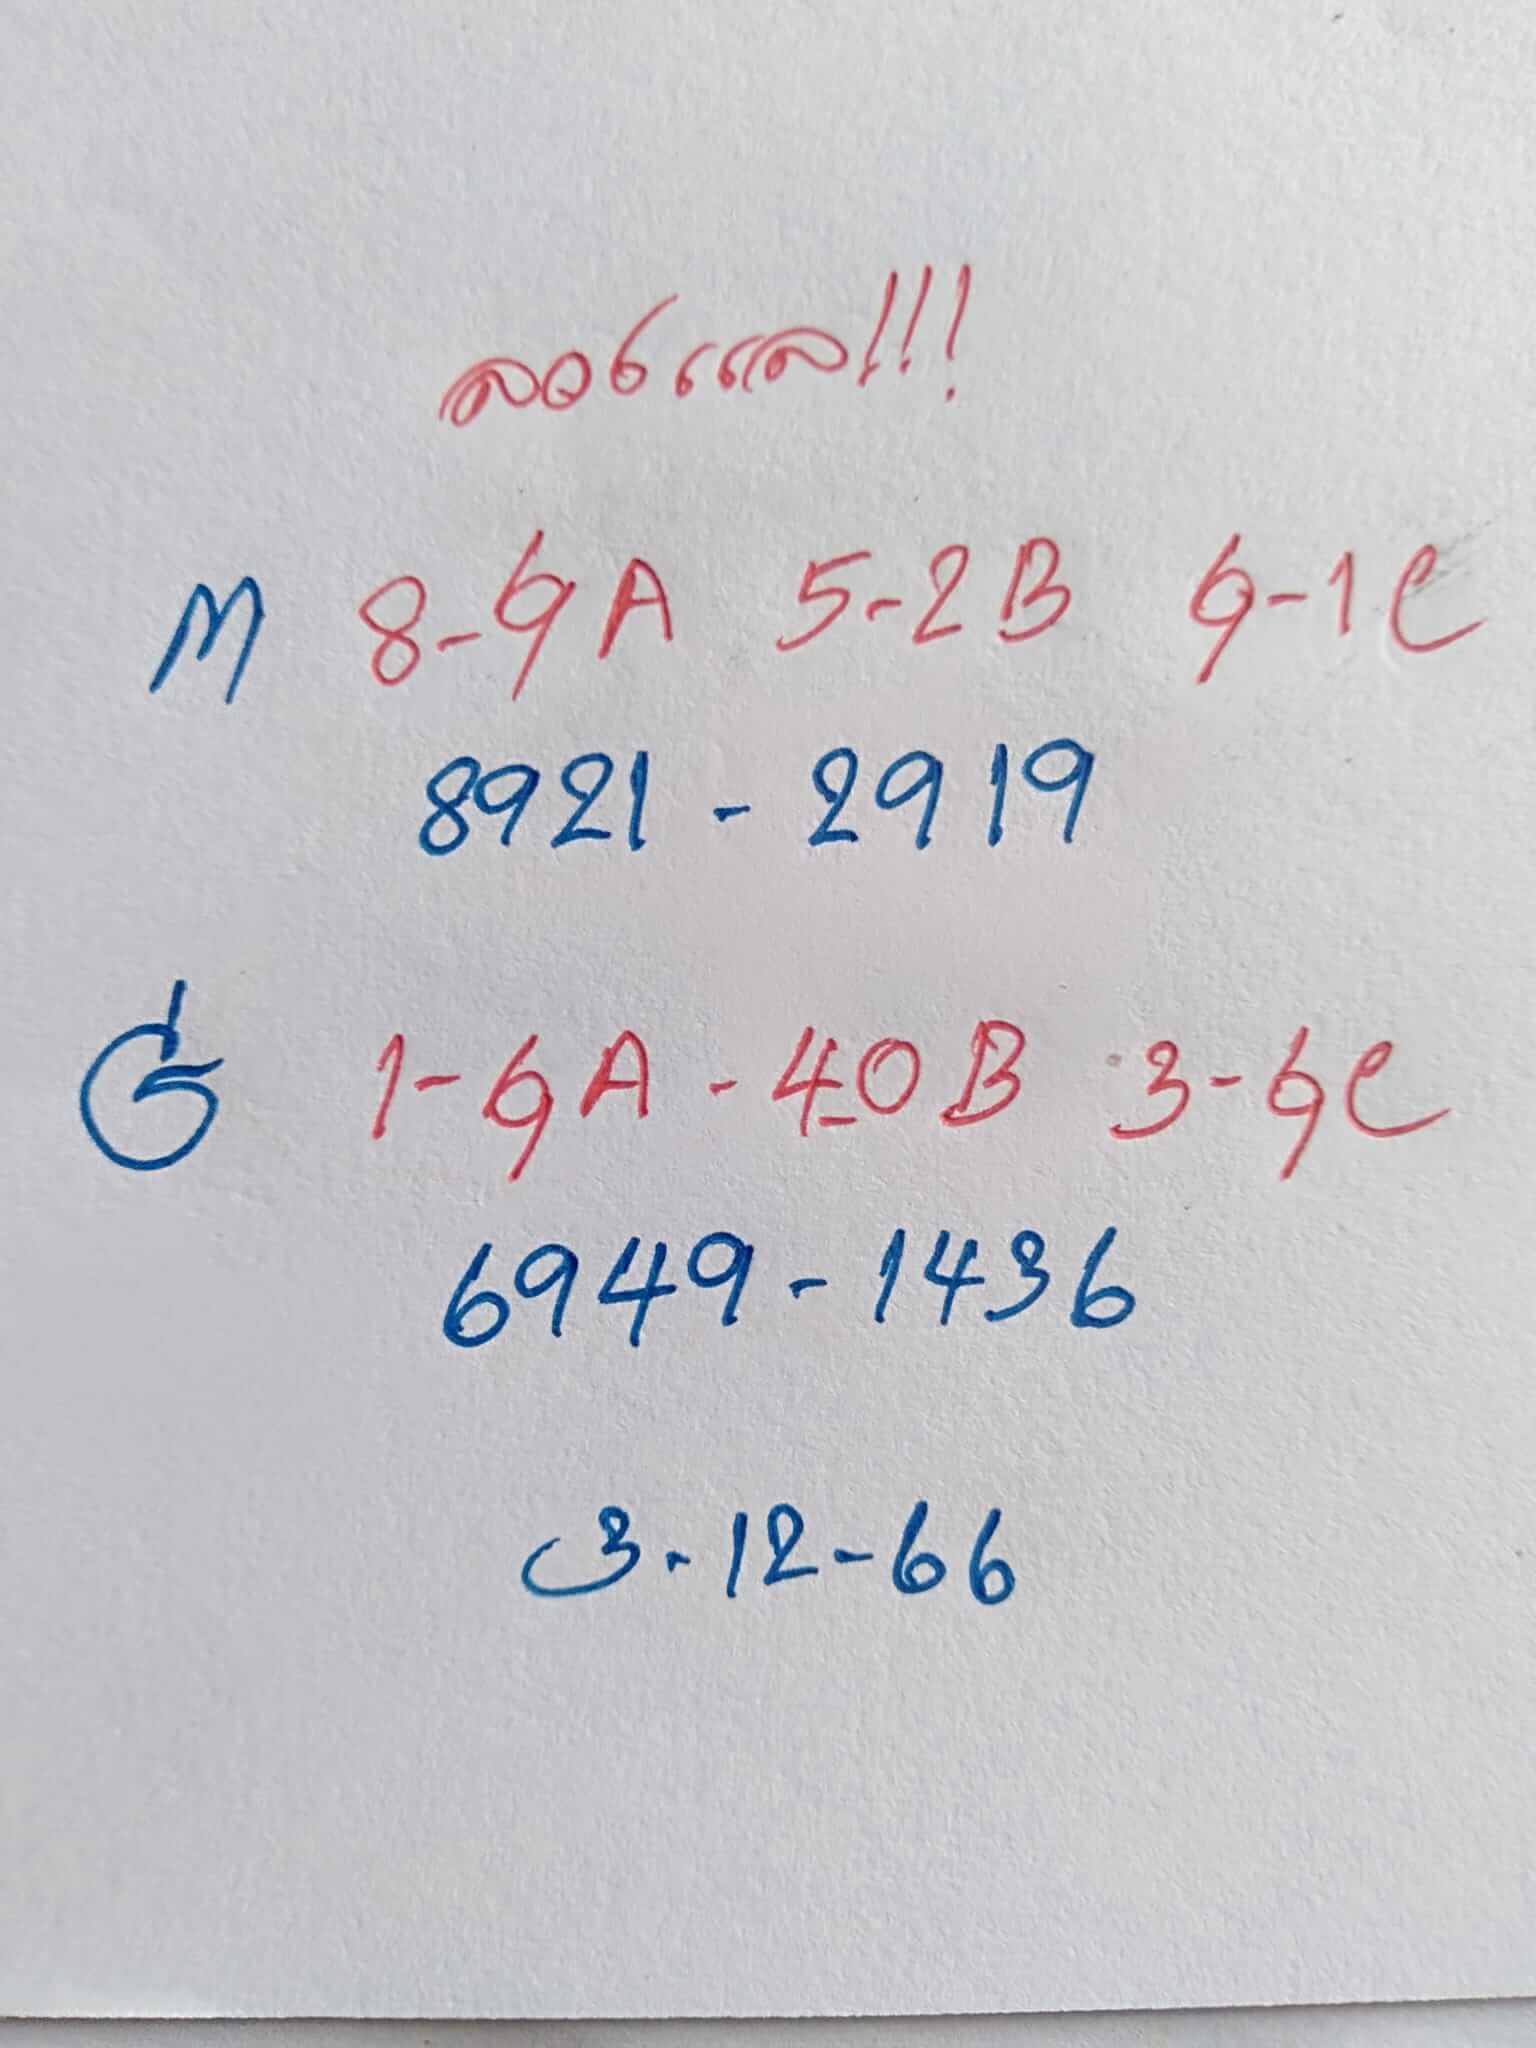 ลองแล!!!
M 8-9A 5-2B 9-1C
8921 - 2919
G 1-9A - 4-0B 3-9C
6949 - 1436
3-12-66